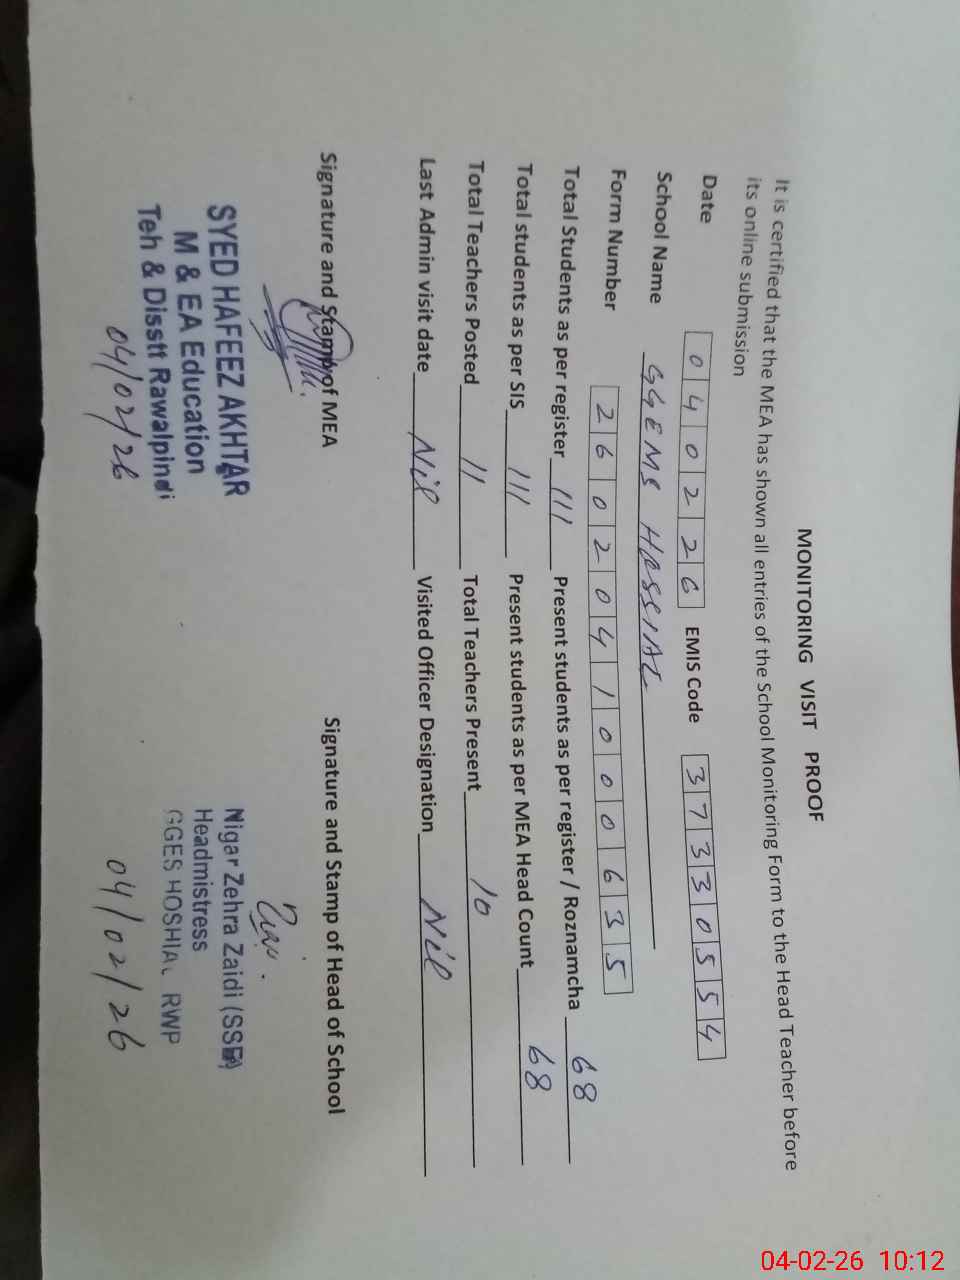 MONITORING VISIT PROOF
It is certified that the MEA has shown all entries of the School Monitoring Form to the Head Teacher before
its online submission
Date 040226 EMIS Code 37330554
School Name GGEMS HOSSIAL
Form Number 2602041000635
Total Students as per register 111 Present students as per register / Roznamcha 68
Total students as per SIS 111 Present students as per MEA Head Count 68
Total Teachers Posted 11 Total Teachers Present 10
Last Admin visit date Nil Visited Officer Designation Nil
Signature and Stamp of MEA Signature and Stamp of Head of School
SYED HAFEEZ AKHTAR
M & EA Education
Teh & Disstt Rawalpindi
04/02/26
Nigar Zehra Zaidi (SSE)
Headmistress
GGES HOSHIAL RWP
04/02/26
04-02-26 10:12